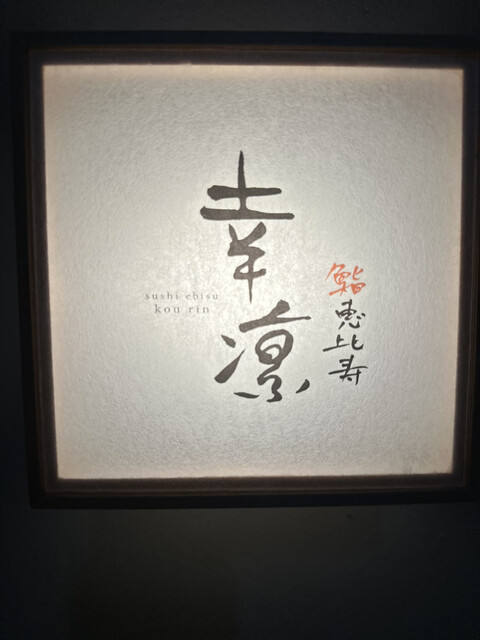 幸凛
鮨恵比寿
sushi ebisu
kou rin